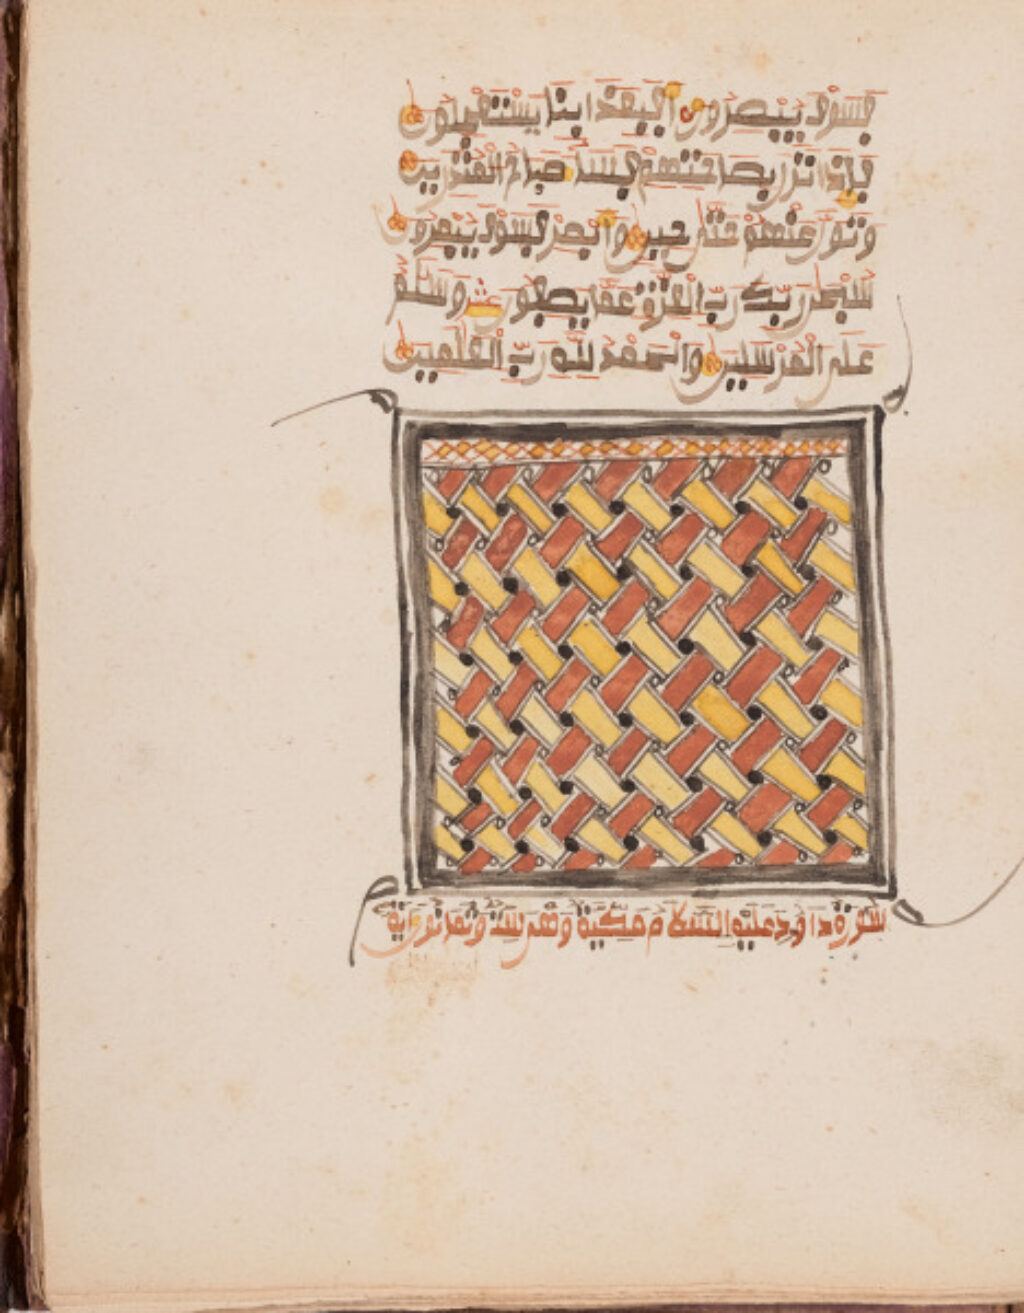 فَسَوْفَ يُبْصِرُونَ أَفَبِعَذَابِنَا يَسْتَعْجِلُونَ
فَإِذَا نَزَلَ بِسَاحَتِهِمْ فَسَاءَ صَبَاحُ الْمُنْذَرِينَ
وَتَوَلَّ عَنْهُمْ حَتَّى حِينٍ وَأَبْصِرْ فَسَوْفَ يُبْصِرُونَ
سُبْحَنَ رَبِّكَ رَبِّ الْعِزَّةِ عَمَّا يَصِفُونَ وَسَلَمٌ
عَلَى الْمُرْسَلِينَ وَالْحَمْدُ لِلَّهِ رَبِّ الْعَلَمِينَ
سورة داود عليه السلام مكية وهي ست وثمانون اية